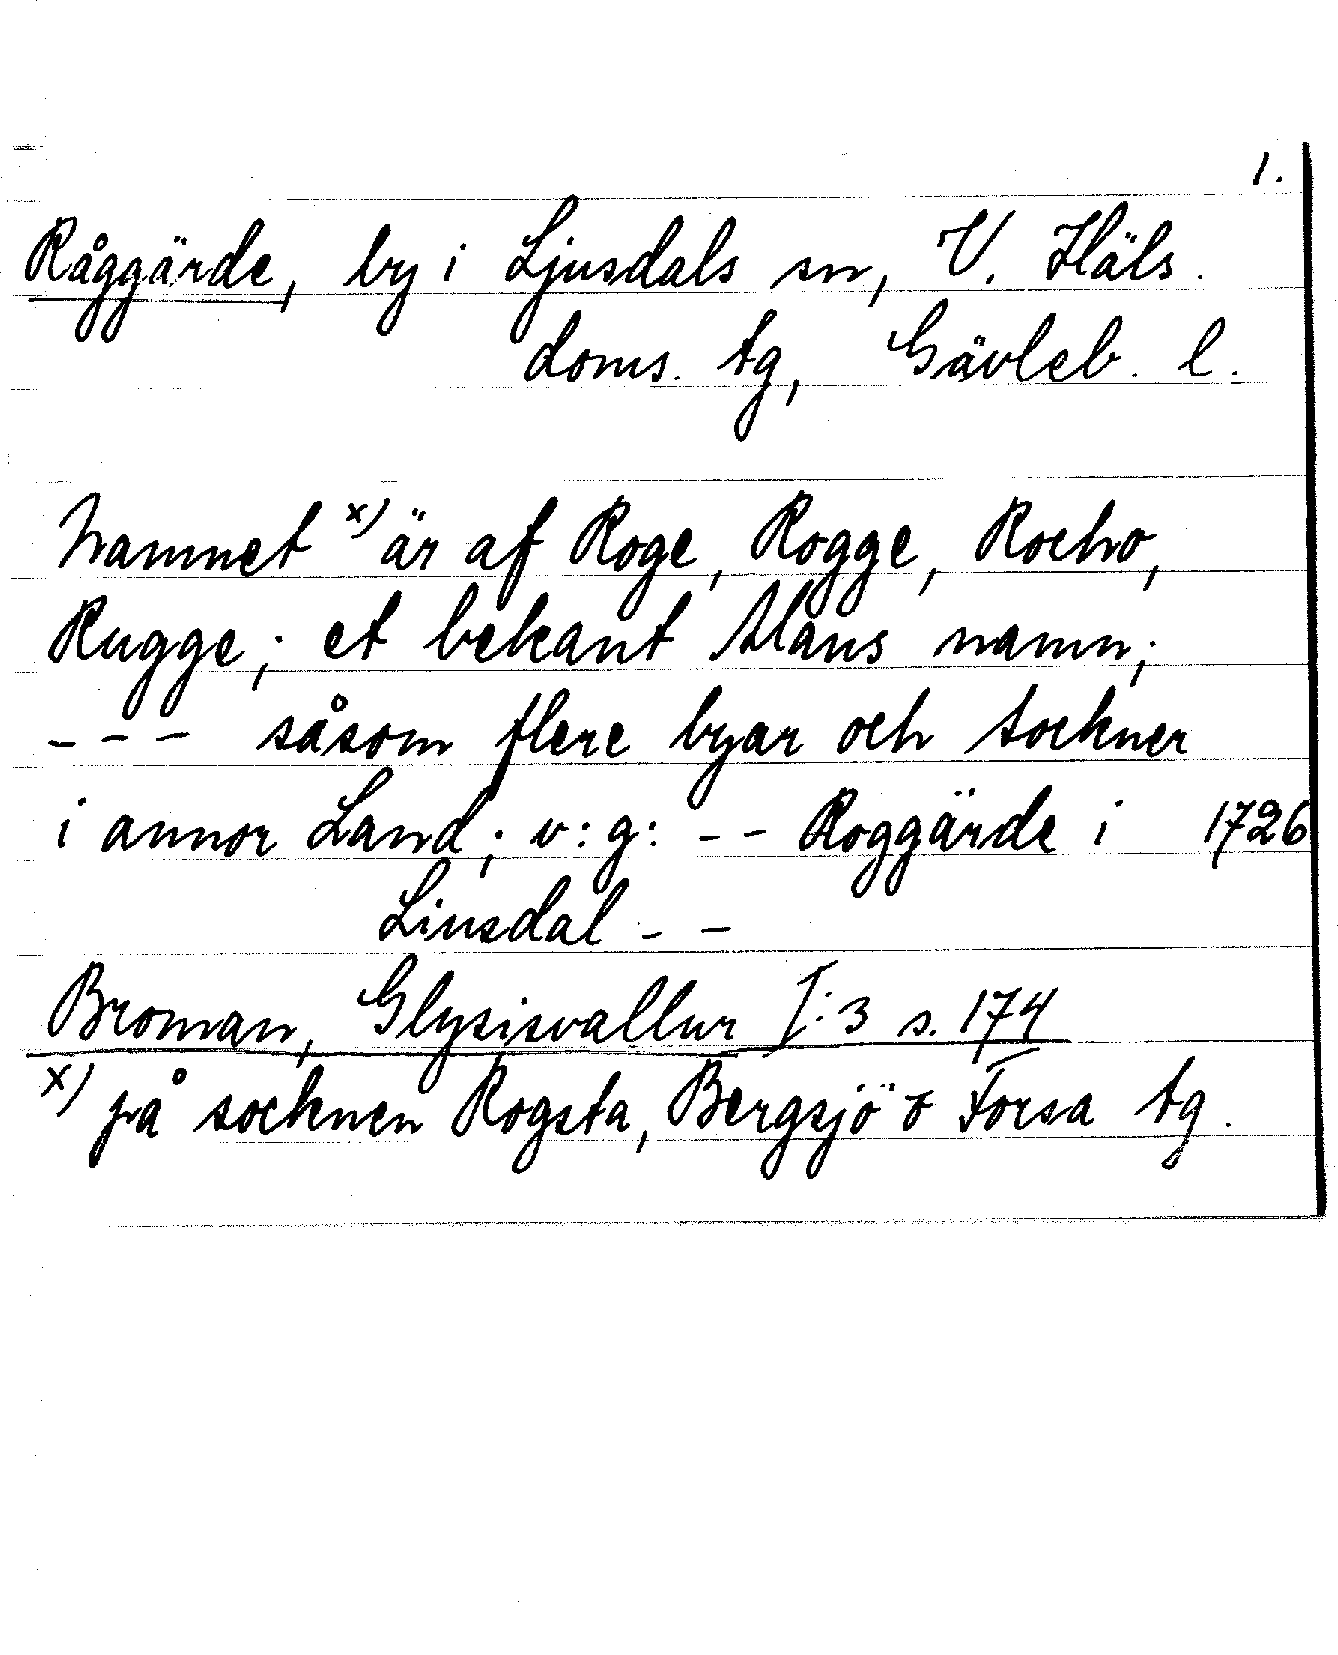 1.
Råggärde, by i Ljusdals sn, V. Häls.
doms. tg, Gävleb. l.
Namnet x) är af Roge, Rogge, Rocho,
Rugge; et bekant Mans namn;
--- såsom flere byar och sockner
i annor Land; v:g: -- Roggärde i 1726
Liusdal --
Broman, Glysisvallur I:3 s. 174
x) på socknen Rogsta, Bergsjö o Forsa tg.